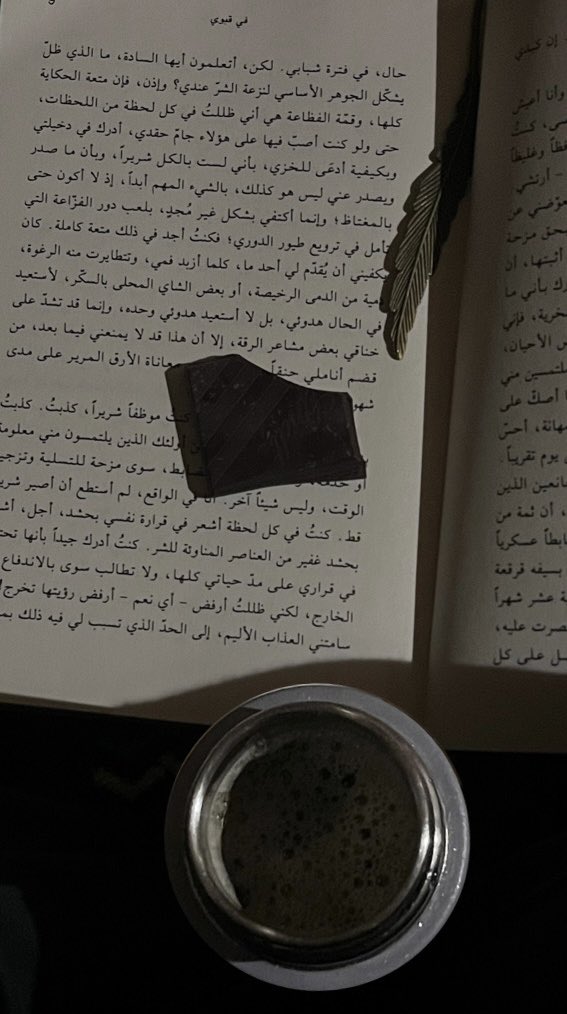 في قبوي
حال، في فترة شبابي. لكن، أتعلمون أيها السادة، ما الذي ظلّ
يشكّل الجوهر الأساسي لنزعة الشرّ عندي؟ وإذن، فإن متعة الحكاية
كلها، وقمّة الفظاعة هي أني ظللتُ في كل لحظة من اللحظات،
حتى ولو كنت أصبّ فيها على هؤلاء جامّ حقدي، أدرك في دخيلتي
وبكيفية أدعَى للخزي، بأني لست بالكل شريراً، وبأن ما صدر
ويصدر عني ليس هو كذلك، بالشيء المهم أبداً، إذ لا أكون حتى
بالمغتاظ؛ وإنما أكتفي بشكل غير مُجدٍ، بلعب دور الفزّاعة التي
تأمل في ترويع طيور الدوري؛ فكنتُ أجد في ذلك متعة كاملة. كان
يكفيني أن يُقدّم لي أحد ما، كلما أزبد فمي، وتتطايرت منه الرغوة،
دمية من الدمى الرخيصة، أو بعض الشاي المحلى بالسكّر، لأستعيد
في الحال هدوئي، بل لا أستعيد هدوئي وحده، وإنما قد تشدّ على
خناقي بعض مشاعر الرقة، إلا أن هذا قد لا يمنعني فيما بعد، من
قضم أناملي حنقاً معاناة الأرق المرير على مدى
شهو
كنت موظفاً شريراً، كذبتُ. كذبتُ
أولئك الذين يلتمسون مني معلومة
أو سوى مزحة للتسلية وتزجية
الوقت، وليس شيئاً آخر. أنا في الواقع، لم أستطع أن أصير شريراً
قط. كنتُ في كل لحظة أشعر في قرارة نفسي بحشد، أجل،
بحشد غفير من العناصر المناوئة للشر. كنتُ أدرك جيداً بأنها
في قراري على مدّ حياتي كلها، ولا تطالب سوى بالاندفاع
الخارج، لكني ظللتُ أرفض - أي نعم - أرفض رؤيتها تخرج!
سامتني العذاب الأليم، إلى الحدّ الذي تسبب لي فيه ذلك
وأنا أعيش
كنتُ
وغليظاً
- أرتشي
عن
مزحة
أن
بأني ما
فإني
الأحيان،
يلتمسين مني
أصكّ على
أحسّ
يوم تقريباً.
الذين
أن ثمة من
عسكرياً
بسيفه قرقعة
عشر شهراً
عليه،
على كل